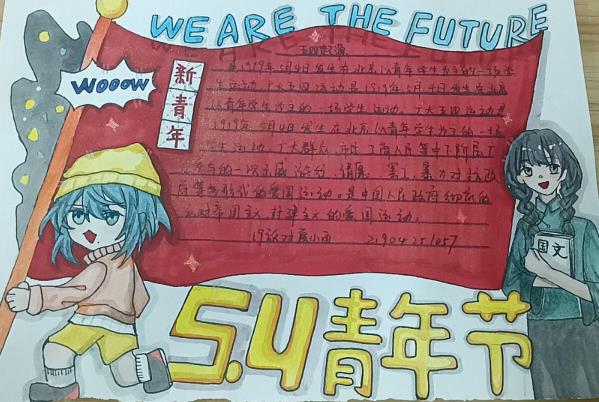 WE ARE THE FUTURE
WOOOW
新青年
五四起源
是1919年5月4日发生在北京以青年学生为主的一场学
生运动,广大五四运动是1919年5月4日发生在北京
以青年学生为主的一场学生运动,广大五四运动是
1919年5月4日发生在北京以青年学生为主的一场
学生运动,广大群众、市民、工商人士等中下阶层广
参与的一次示威游行、请愿、罢工、暴力对抗政
府等多形式的爱国运动。是中国人民政府彻底的
反对帝国主义、封建主义的爱国运动。
国文
5.4青年节